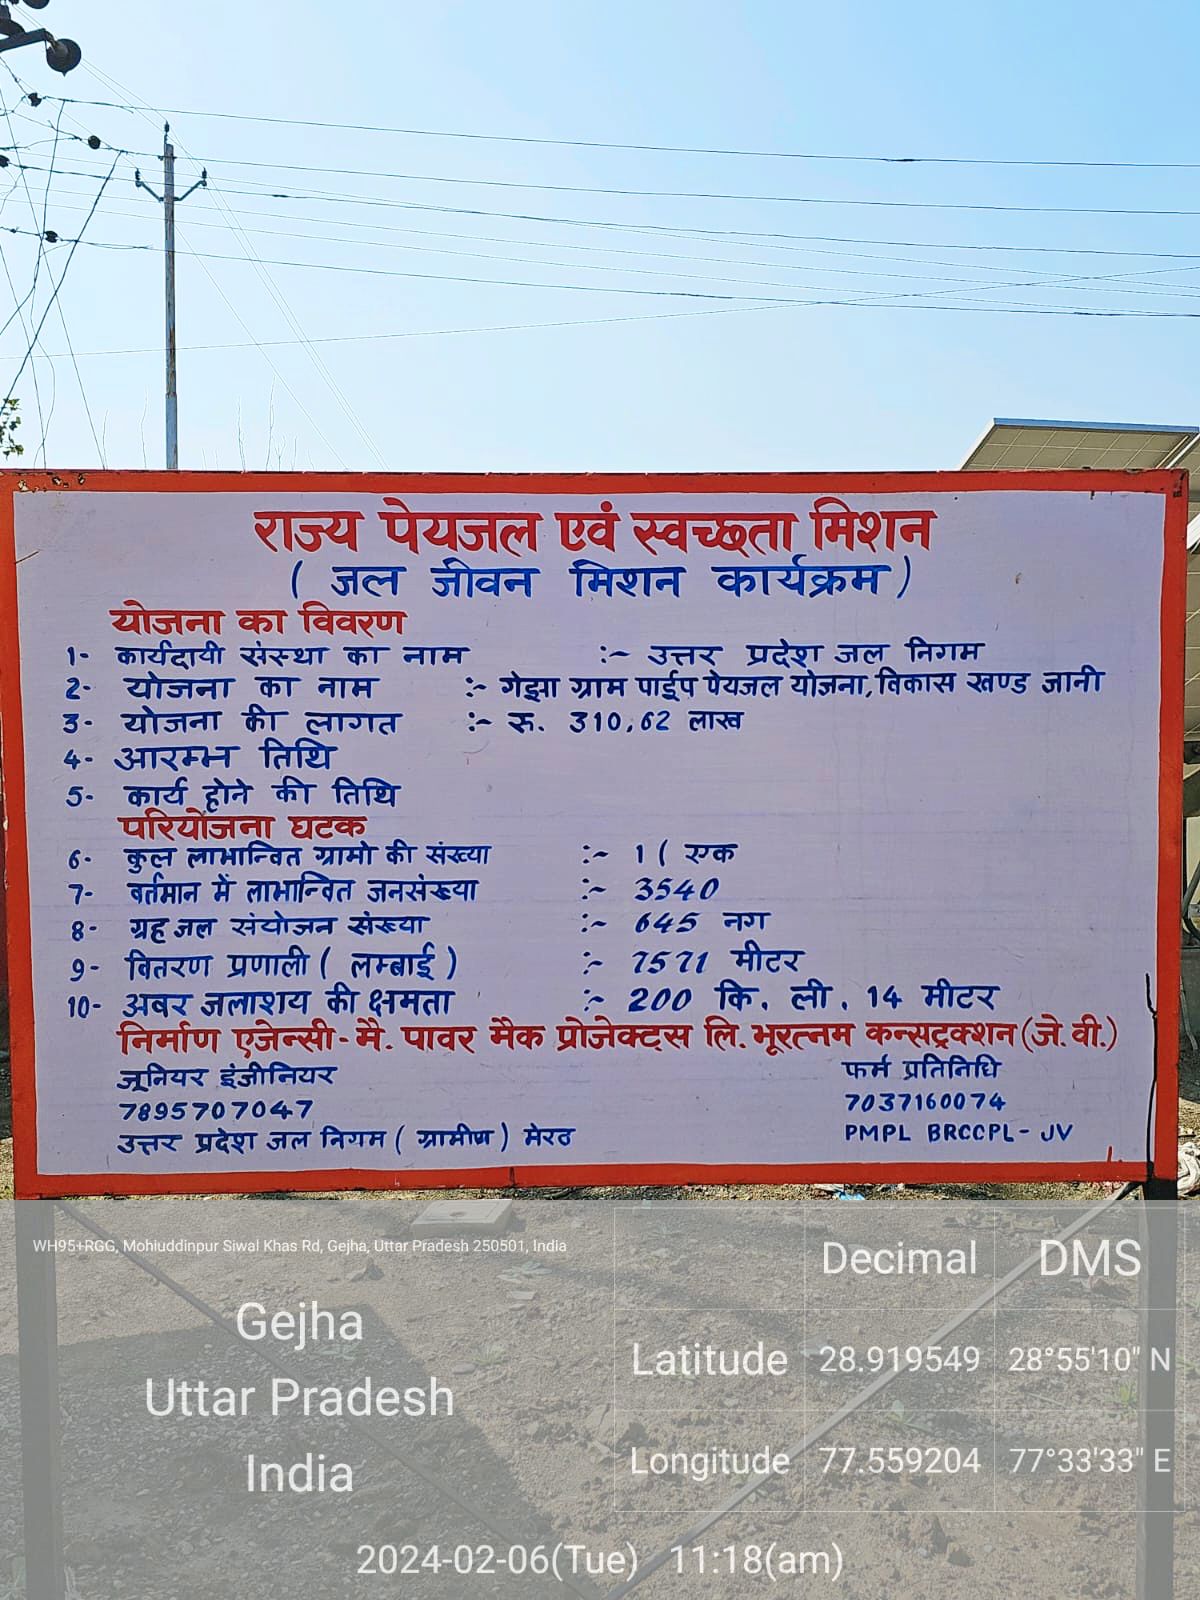 राज्य पेयजल एवं स्वच्छता मिशन
( जल जीवन मिशन कार्यक्रम )
योजना का विवरण
1- कार्यदायी संस्था का नाम :- उत्तर प्रदेश जल निगम
2- योजना का नाम :- गेझा ग्राम पाईप पेयजल योजना, विकास खण्ड जानी
3- योजना की लागत :- रु. 310.62 लाख
4- आरम्भ तिथि
5- कार्य होने की तिथि
परियोजना घटक
6- कुल लाभान्वित ग्रामो की संख्या :- 1 ( एक
7- वर्तमान में लाभान्वित जनसंख्या :- 3540
8- ग्रह जल संयोजन संख्या :- 645 नग
9- वितरण प्रणाली ( लम्बाई ) :- 7571 मीटर
10- अवर जलाशय की क्षमता :- 200 कि. ली. 14 मीटर
निर्माण एजेन्सी - मै. पावर मैक प्रोजेक्ट्स लि. भूरत्नम कन्सट्रक्शन (जे. वी.)
जूनियर इंजीनियर
7895707047
उत्तर प्रदेश जल निगम ( ग्रामीण ) मेरठ
फर्म प्रतिनिधि
7037160074
PMPL BRCCPL- JV
WH95+RGG, Mohiuddinpur Siwal Khas Rd, Gejha, Uttar Pradesh 250501, India
Gejha
Uttar Pradesh
India
Decimal DMS
Latitude 28.919549 28°55'10" N
Longitude 77.559204 77°33'33" E
2024-02-06(Tue) 11:18(am)